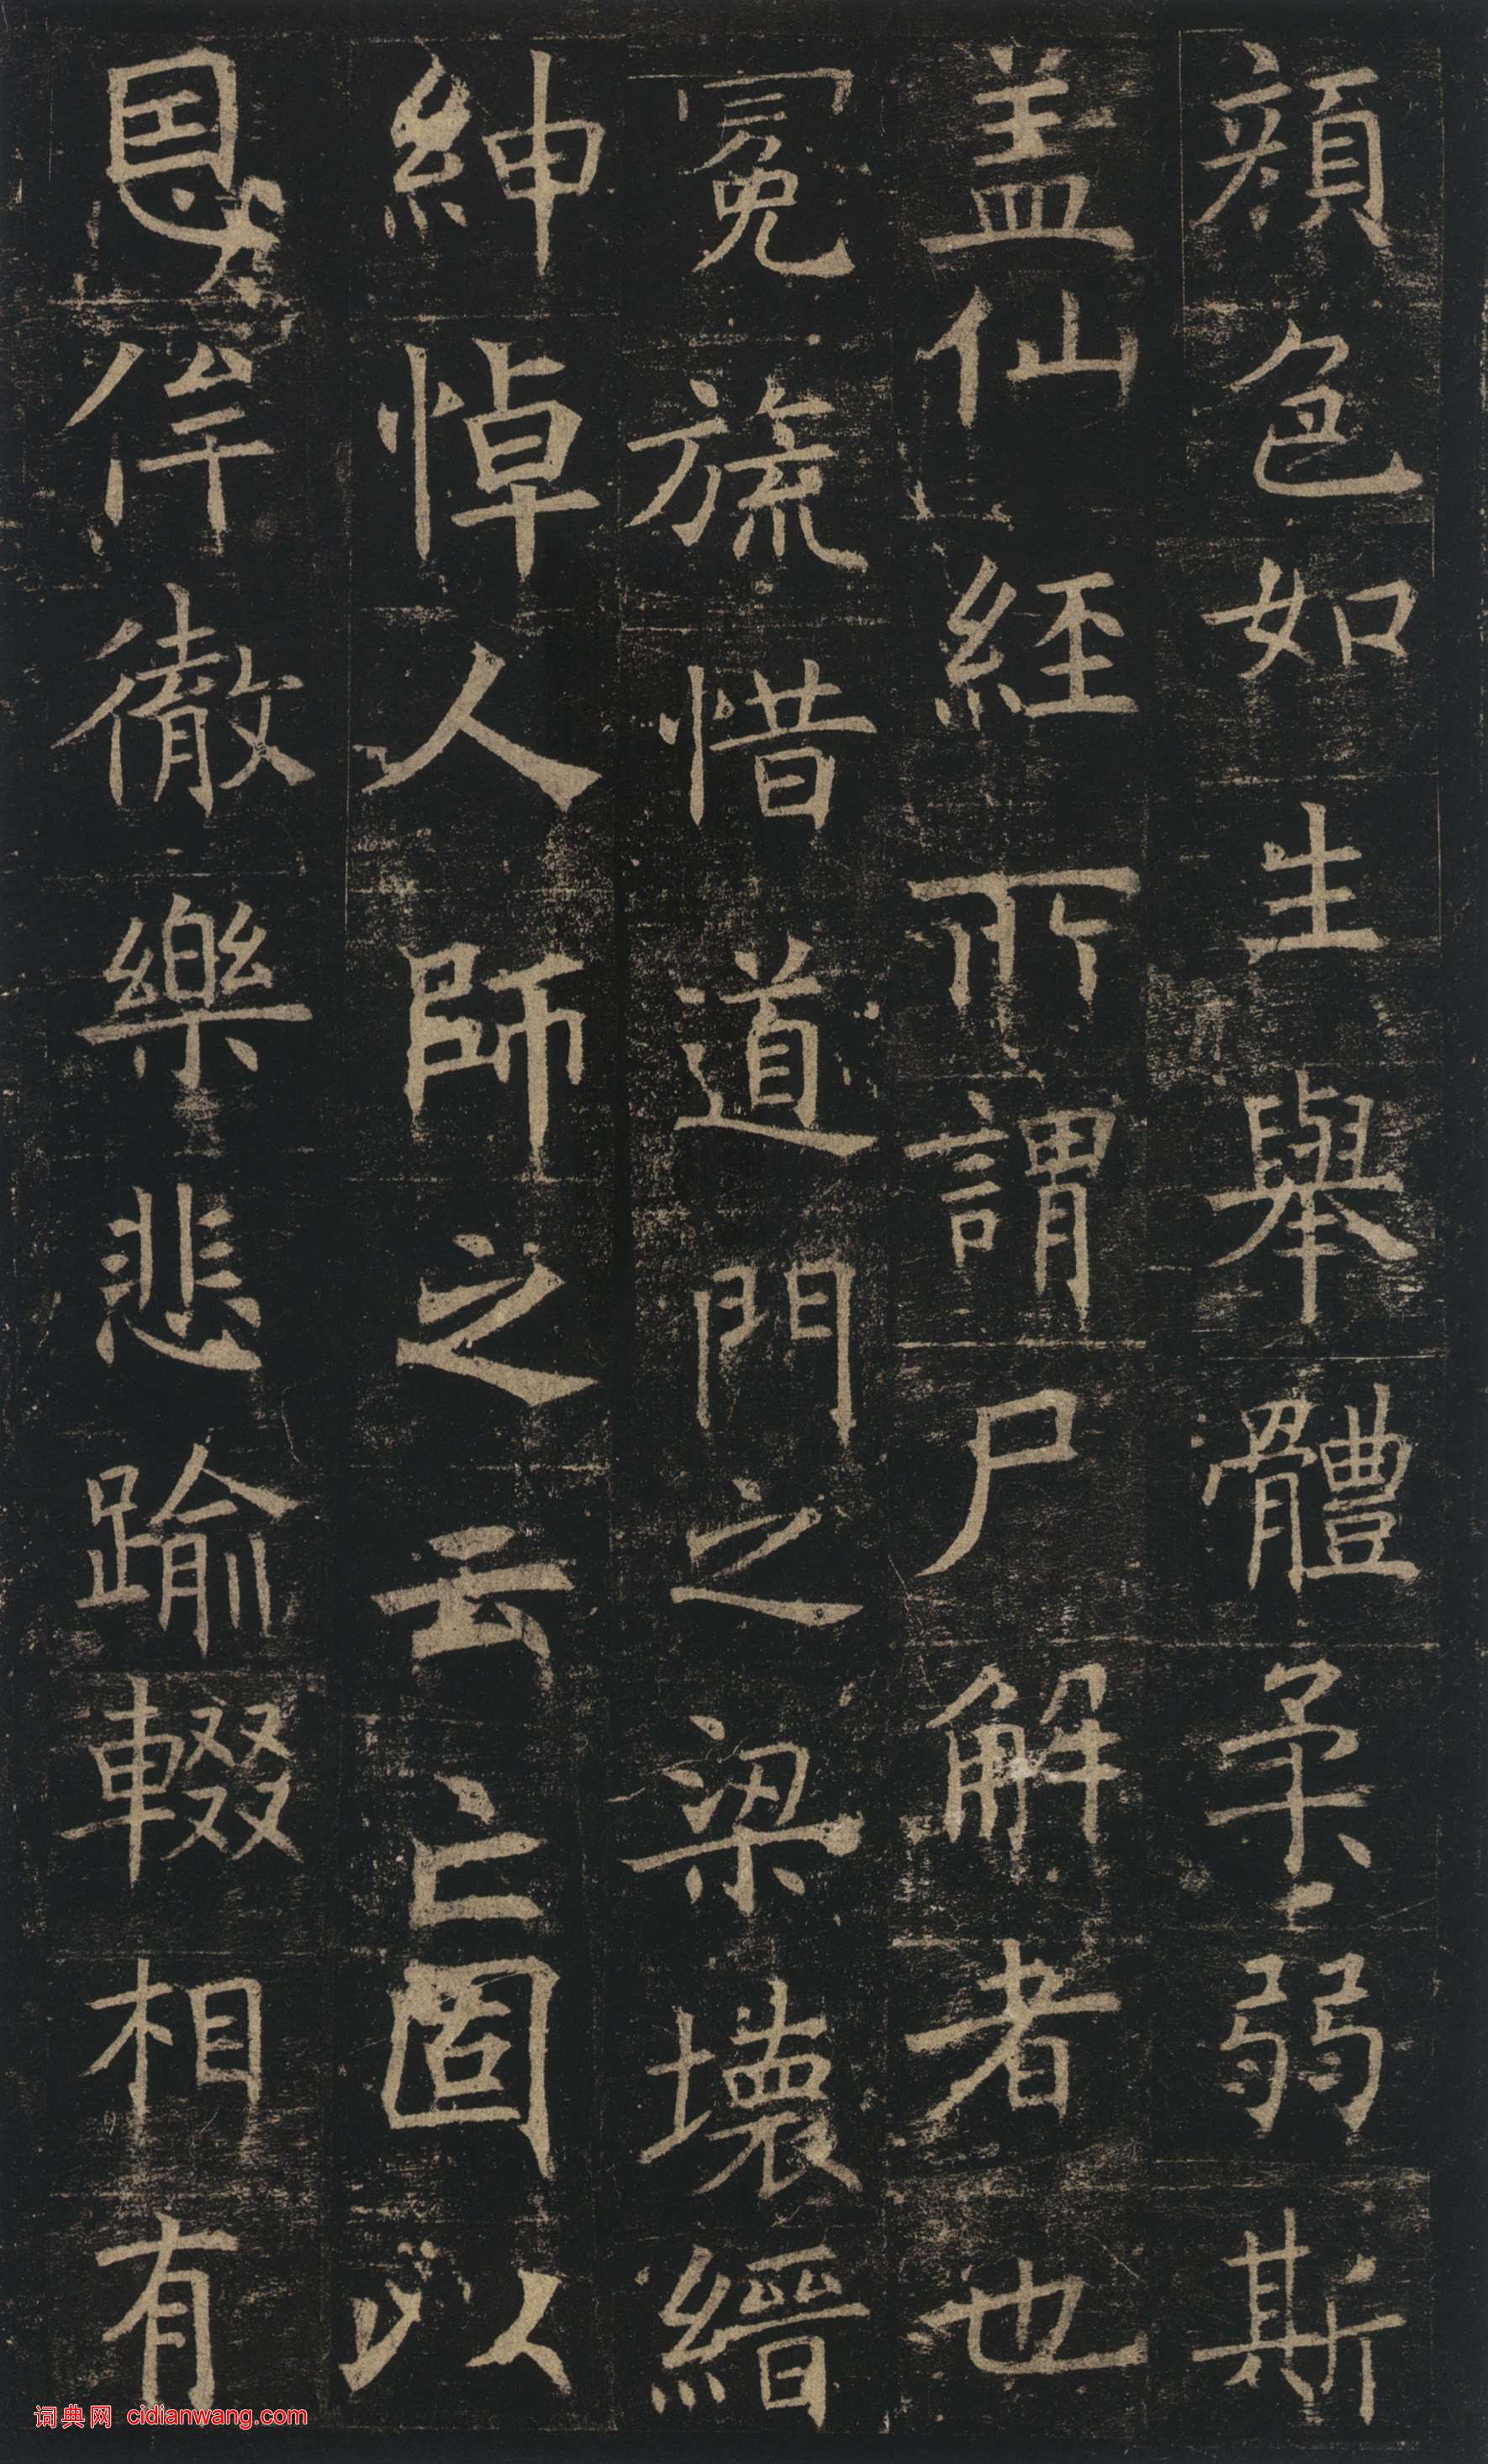 顔色如生舉體柔弱斯
盖仙經所謂尸解者也
冕旒惜道門之梁壞縉
紳悼人師之云亡固以
恩侔徹樂悲踰輟相有
词典网 cidianwang.com